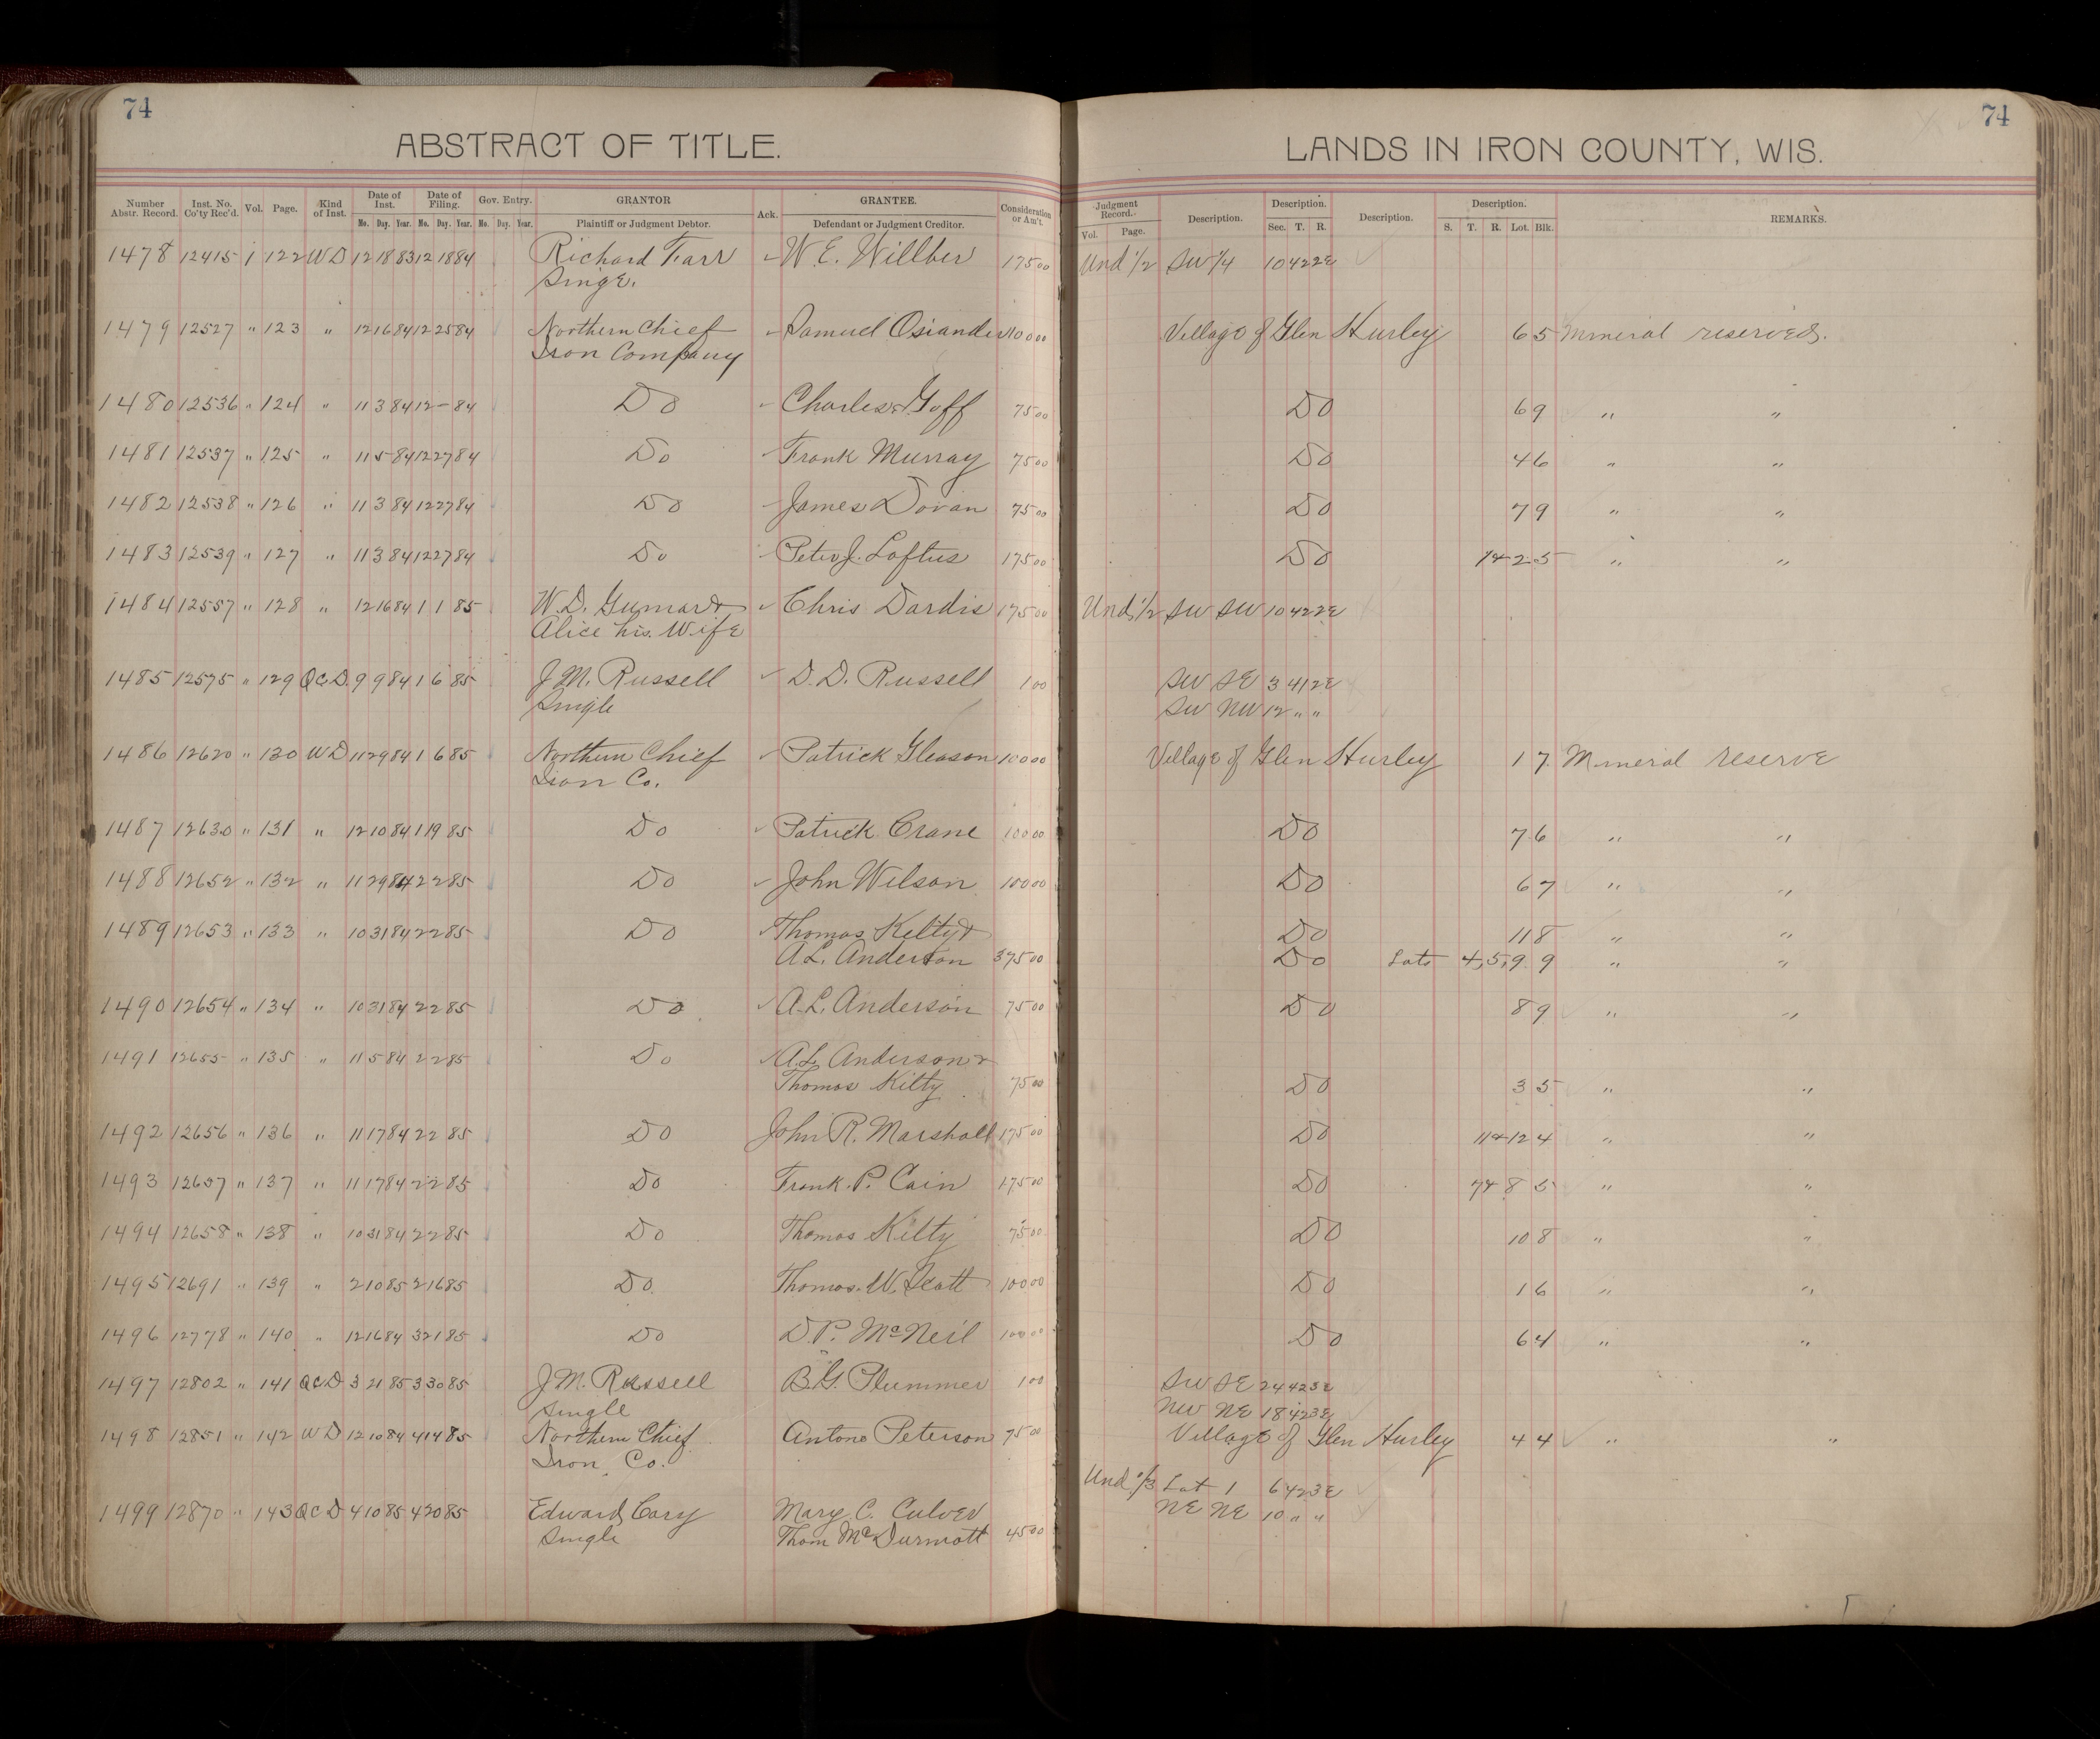 74
ABSTRACT OF TITLE.
LANDS IN IRON COUNTY, WIS.
74
Number Abstr. Record. Inst. No. Co'ty Rec'd. Vol. Page. Kind of Inst. Date of Inst. Mo. Day. Year. Date of Filing. Mo. Day. Year. Gov. Entry. Mo. Day. Year. GRANTOR Plaintiff or Judgment Debtor. Ack. GRANTEE. Defendant or Judgment Creditor. Consideration or Am't. Judgment Record. Vol. Page. Description. Description. Sec. T. R. Description. Description. S. T. R. Lot. Blk. REMARKS.
1478 12415 1 122 WD 12 18 83 12 18 84 Richard Farr W. E. Willber 175 00 Und 1/2 SW 1/4 10 42 2E
Singe.
1479 12527 " 123 " 12 16 84 12 25 84 Northern Chief Samuel Osiander 100 00 Village of Glen Hurley 6 5 Mineral reserved.
Iron Company
1480 12536 " 124 " 11 3 84 12 – 84 Do Charles Goff 75 00 Do 6 9 " "
1481 12537 " 125 " 11 5 84 12 27 84 Do Frank Murray 75 00 Do 4 6 " "
1482 12538 " 126 " 11 3 84 12 27 84 Do James Doran 75 00 Do 7 9 " "
1483 12539 " 127 " 11 3 84 12 27 84 Do Peter J. Loftus 175 00 Do 1&2 5 " "
1484 12557 " 128 " 12 16 84 1 1 85 W. D. & Chris Dardis 175 00 Und 1/2 SW SW 10 42 2E
Alice his Wife
1485 12575 " 129 QCD. 9 9 84 1 6 85 J M. Russell D. D. Russell 1 00 SW SE 3 41 2E
Single SW NW 12 " "
1486 12620 " 130 WD 11 29 84 1 6 85 Northern Chief Patrick Gleason 100 00 Village of Glen Hurley 1 7 Mineral reserve
Iron Co.
1487 12630 " 131 " 12 10 84 1 19 85 Do Patrick Crane 100 00 Do 7 6 " "
1488 12652 " 132 " 11 29 84 2 2 85 Do John Wilson 100 00 Do 6 7 " "
1489 12653 " 133 " 10 31 84 2 2 85 Do Thomas Kelty & Do 11 8 " "
A. L. Anderson 375 00 Do Lots 4,5,9 9 " "
1490 12654 " 134 " 10 31 84 2 2 85 Do A. L. Anderson 75 00 Do 8 9 " "
1491 12655 " 135 " 11 5 84 2 2 85 Do A. L. Anderson &
Thomas Kilty 75 00 Do 3 5 " "
1492 12656 " 136 " 11 17 84 2 2 85 Do John R. Marshall 175 00 Do 11&12 4 " "
1493 12657 " 137 " 11 17 84 2 2 85 Do Frank P. Cain 175 00 Do 7&8 5 " "
1494 12658 " 138 " 10 31 84 2 2 85 Do Thomas Kilty 75 00 Do 10 8 " "
1495 12691 " 139 " 2 10 85 2 16 85 Do Thomas. W. Scott 100 00 Do 1 6 " "
1496 12778 " 140 " 12 16 84 3 21 85 Do D. P. McNeil 100 00 Do 6 4 " "
1497 12802 " 141 QCD 3 21 85 3 30 85 J M. Russell B. G. Plummer 1 00 SW SE 24 42 3E
Single NW NE 18 42 3E
1498 12851 " 142 WD 12 10 84 4 14 85 Northern Chief Antone Peterson 75 00 Village of Glen Hurley 4 4 " "
Iron Co.
Und 1/3 Lot 1 6 42 3E
1499 12870 " 143 QCD 4 10 85 4 20 85 Edward Cary Mary C. Culver NE NE 10 " "
Single Thom McDurmott 45 00